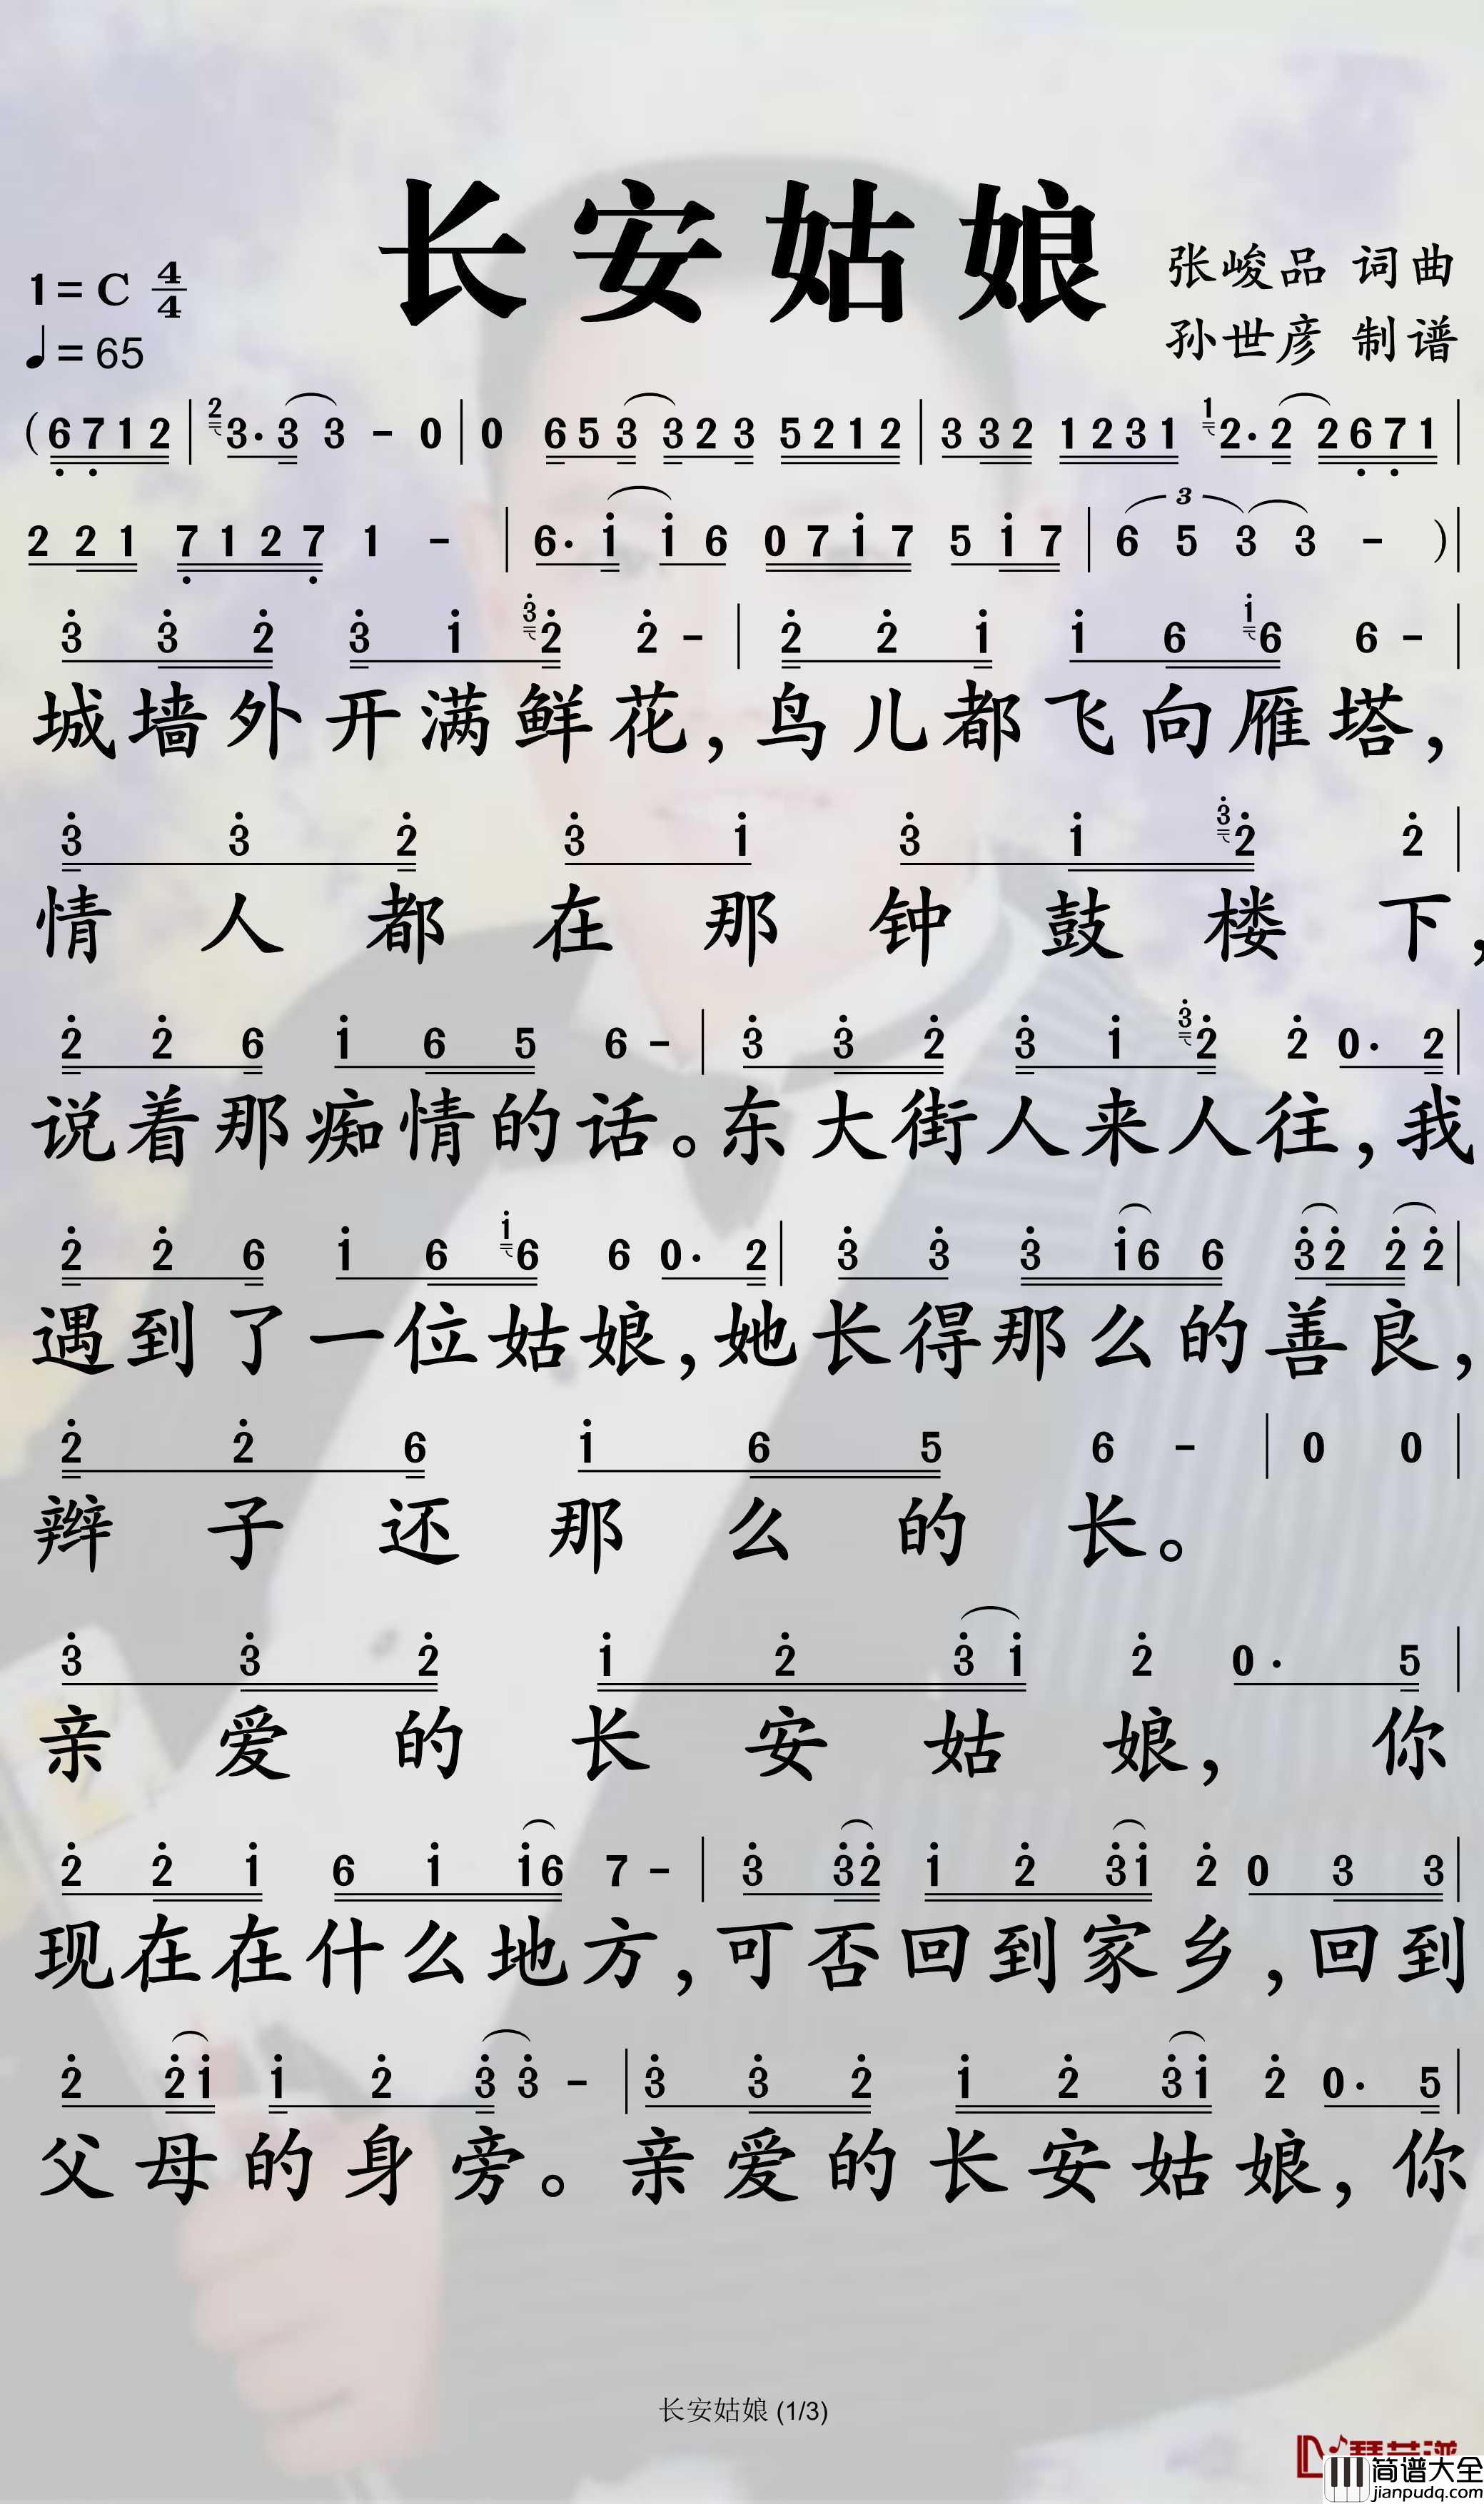 长安姑娘
1=C 4/4
♩=65
张峻品 词曲
孙世彦 制谱
(6̣ 7̣ 1 2 | 2 3· 3 3 - 0 | 0 6 5 3 3 2 3 5 2 1 2 | 3 3 2 1 2 3 1 1 2· 2 2 6̣ 7̣ 1 |
2 2 1 7̣ 1 2 7̣ 1 - | 6· i i 6 0 7 i 7 5 i 7 | 3 6 5 3 3 - ) |
3̇ 3̇ 2̇ 3̇ i 3̇ 2̇ 2̇ - | 2̇ 2̇ i i 6 i 6 6 - |
城墙外开满鲜花,鸟儿都飞向雁塔,
3̇ 3̇ 2̇ 3̇ i 3̇ i 3̇ 2̇ 2̇ |
情人都在那钟鼓楼下,
2̇ 2̇ 6 i 6 5 6 - | 3̇ 3̇ 2̇ 3̇ i 3̇ 2̇ 2̇ 0· 2̇ |
说着那痴情的话。东大街人来人往,我
2̇ 2̇ 6 i 6 i 6 6 0· 2̇ | 3̇ 3̇ 3̇ i 6 6 3̇ 2̇ 2̇ 2̇ |
遇到了一位姑娘,她长得那么的善良,
2̇ 2̇ 6 i 6 5 6 - | 0 0 |
辫子还那么的长。
3̇ 3̇ 2̇ i 2̇ 3̇ i 2̇ 0· 5 |
亲爱的长安姑娘,你
2̇ 2̇ i 6 i i 6 7 - | 3̇ 3̇ 2̇ i 2̇ 3̇ i 2̇ 0 3 3 |
现在在什么地方,可否回到家乡,回到
2̇ 2̇ i i 2̇ 3̇ 3̇ - | 3̇ 3̇ 2̇ i 2̇ 3̇ i 2̇ 0· 5 |
父母的身旁。亲爱的长安姑娘,你
长安姑娘 (1/3)
简谱大全
jianpudq.com